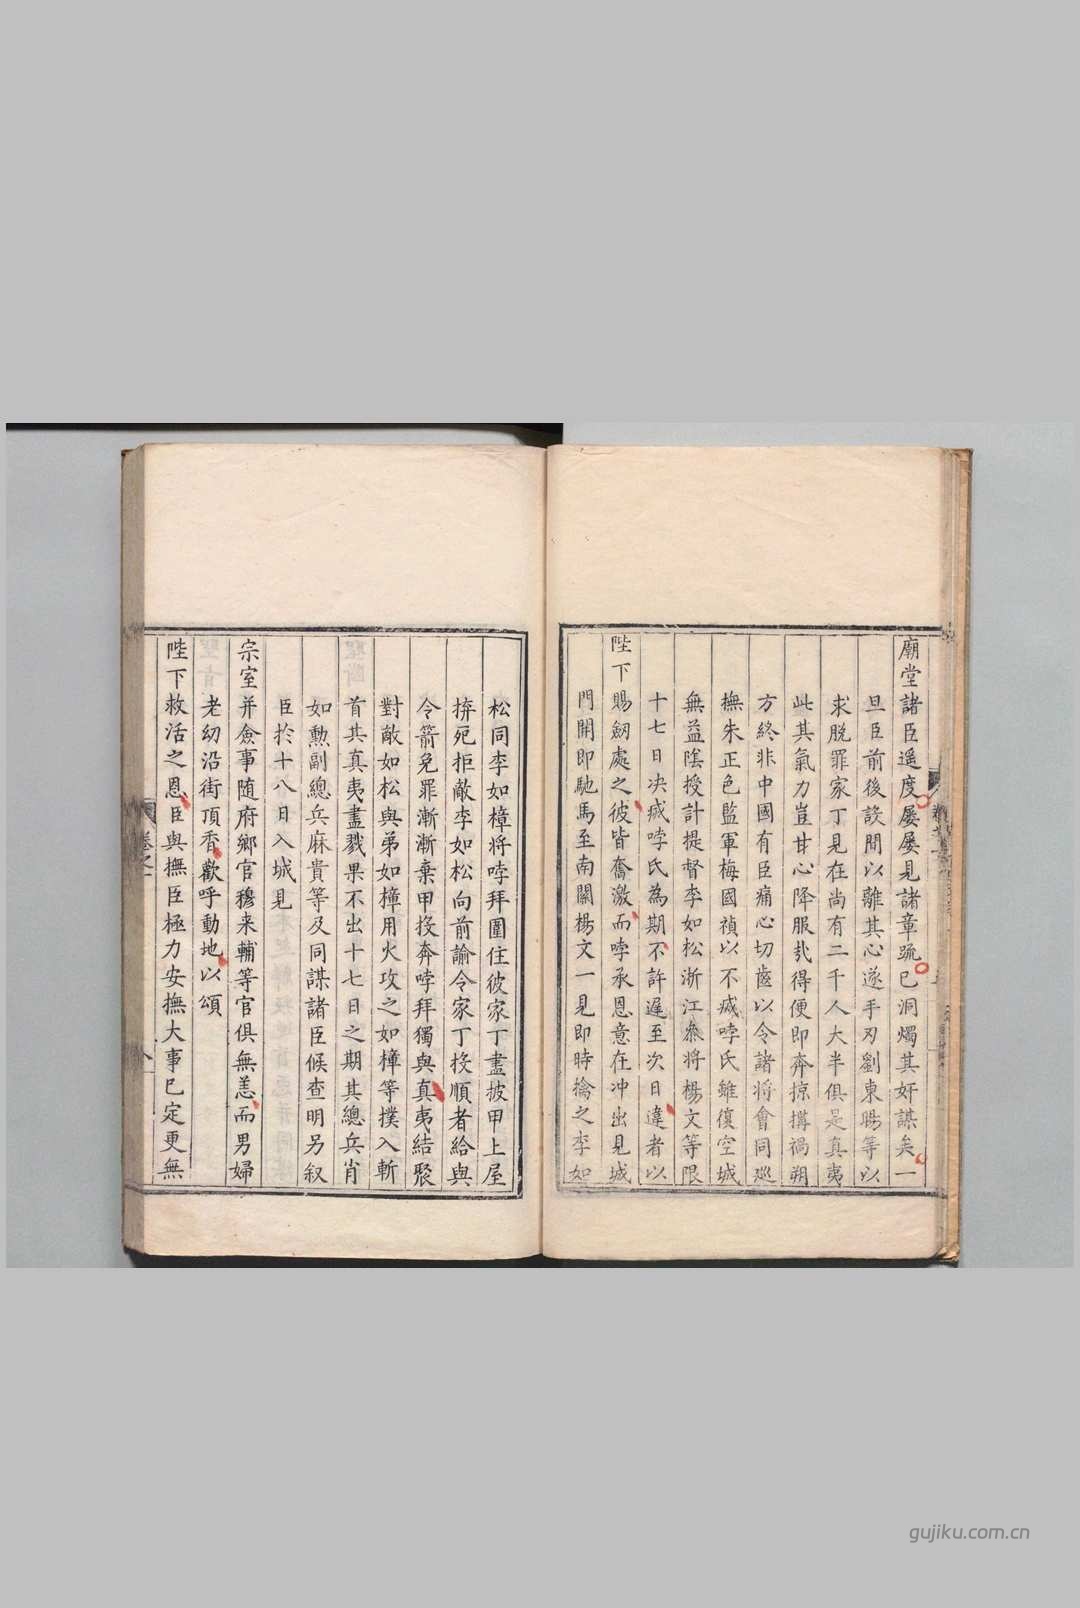 廟堂諸臣遥度屡屡見諸章疏已洞燭其奸謀矣一
旦臣前後設間以離其心遂手刃劉東暘等以
求脱罪家丁見在尚有二千人大半俱是真夷
此其氣力豈甘心降服哉得便即奔掠搆禍朔
方終非中國有臣痛心切齒以令諸將會同廵
撫朱正色監軍梅國禎以不烕哱氏雖復空城
無益陰授計提督李如松浙江叅將楊文等限
十七日决烕哱氏為期不許遲至次日違者以
陛下賜劒處之彼皆奮激而哱承恩意在冲出見城
門開即馳馬至南關楊文一見即時擒之李如
松同李如樟將哱拜圍住彼家丁盡披甲上屋
拚死拒敵李如松向前諭令家丁投順者給與
令箭免罪漸漸棄甲投奔哱拜獨與真夷結聚
對敵如松與弟如樟用火攻之如樟等撲入斬
首其真夷盡戮果不出十七日之期其總兵肖
如勲副總兵麻貴等及同謀諸臣候查明另叙
臣於十八日入城見
宗室并僉事随府鄉官穆来輔等官俱無恙而男婦
老幼沿街頂香歡呼動地以頌
陛下救活之恩臣與撫臣極力安撫大事已定更無
卷之
gujiku.com.cn